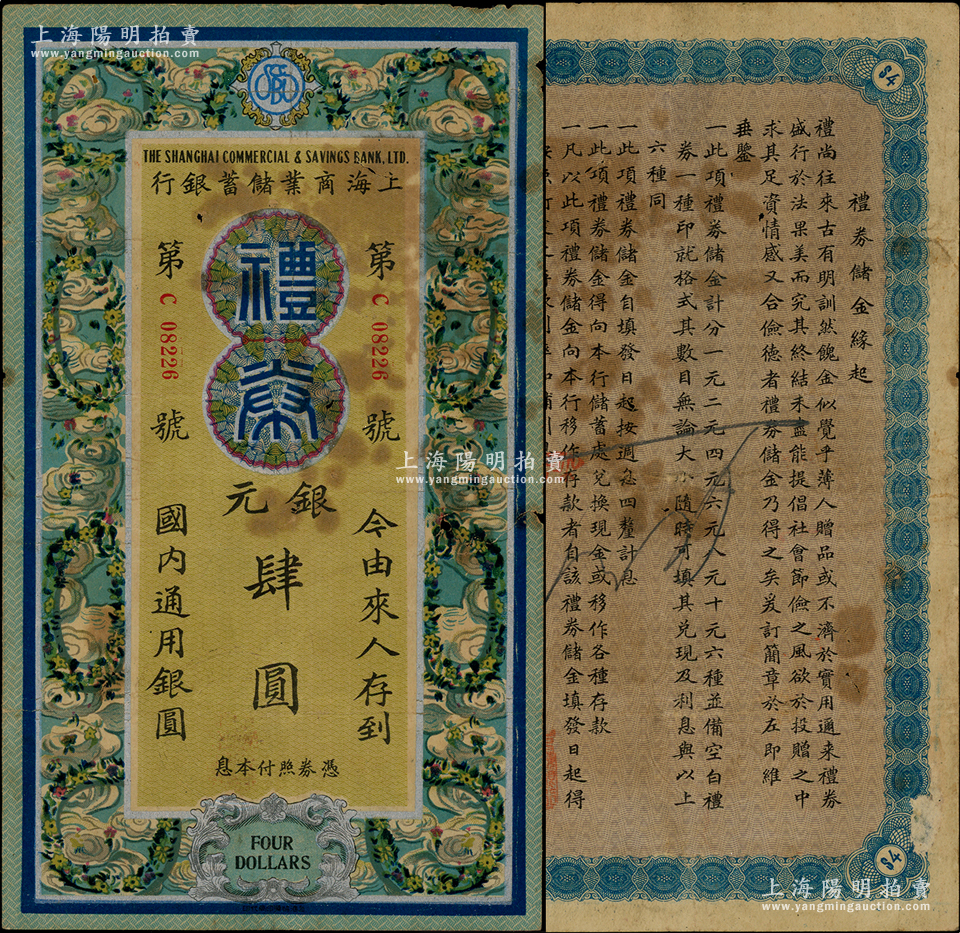 上海陽明拍賣
www.yangmingauction.com
THE SHANGHAI COMMERCIAL & SAVINGS BANK, LTD.
行銀蓄儲業商海上
禮券
第 C 08226 號
第 C 08226 號
元銀
肆圓
今由來人存到
國內通用銀圓
息本付照券憑
FOUR
DOLLARS
$4
禮券儲金緣起
禮尚往來古有明訓然餽金似覺乎薄人贈品或不濟於實用通來禮券
盛行於法果美而究其終結未盡能提倡社會節儉之風欲於投贈之中
求其足資情感又合儉德者禮券儲金乃得之矣爰訂簡章於左即維
垂鑒
一此項禮券儲金計分一元二元四元六元八元十元六種並備空白禮
券一種印就格式其數目無論大小隨時可填其兌現及利息與以上
六種同
一此項禮券儲金自填發日起按週息四釐計息
一此項禮券儲金得向本行儲蓄處兌換現金或移作各種存款
一凡以此項禮券儲金向本行移作存款者自該禮券儲金填發日起得
$4
上海陽明拍賣
www.yangmingauction.com
上海陽明拍賣
www.yangmingauction.com